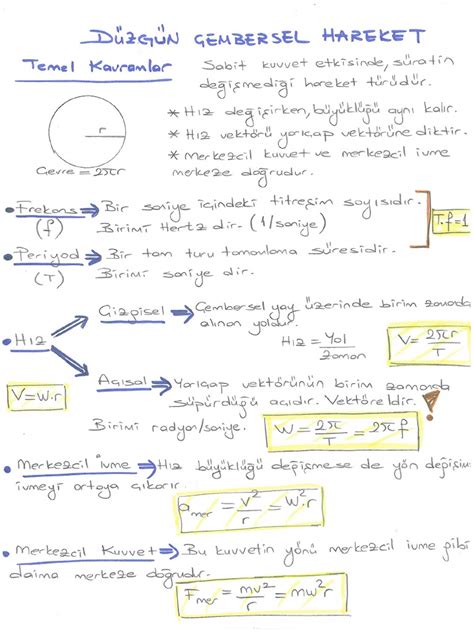 DÜZGÜN ÇEMBERSEL HAREKET
Temel Kavramlar
Sabit kuvvet etkisinde, süratin
değişmediği hareket türüdür.
r
Çevre = 2πr
* Hız değişirken, büyüklüğü aynı kalır.
* Hız vektörü yarıçap vektörüne diktir.
* Merkezcil kuvvet ve merkezcil ivme
merkeze doğrudur.
• Frekans ⇒ Bir saniye içindeki titreşim sayısıdır.
(f) Birimi Hertz dir. (1/saniye)
T.f=1
• Periyod ⇒ Bir tam turu tamamlama süresidir.
(T) Birimi saniye dir.
• Hız
Çizgisel ⇒ Çembersel yay üzerinde birim zamanda
alınan yoldur.
Hız = Yol / Zaman
V = 2πr / T
V=W.r
Açısal ⇒ Yarıçap vektörünün birim zamanda
süpürdüğü açıdır. Vektöreldir.
!
Birimi radyon/saniye.
W = 2π / T = 2πf
• Merkezcil ivme ⇒ Hız büyüklüğü değişmese de yön değişimi
ivmeyi ortaya çıkarır.
a mer = v² / r = w².r
• Merkezcil Kuvvet ⇒ Bu kuvvetin yönü merkezcil ivme gibi
daima merkeze doğrudur.
F mer = mv² / r = mw²r